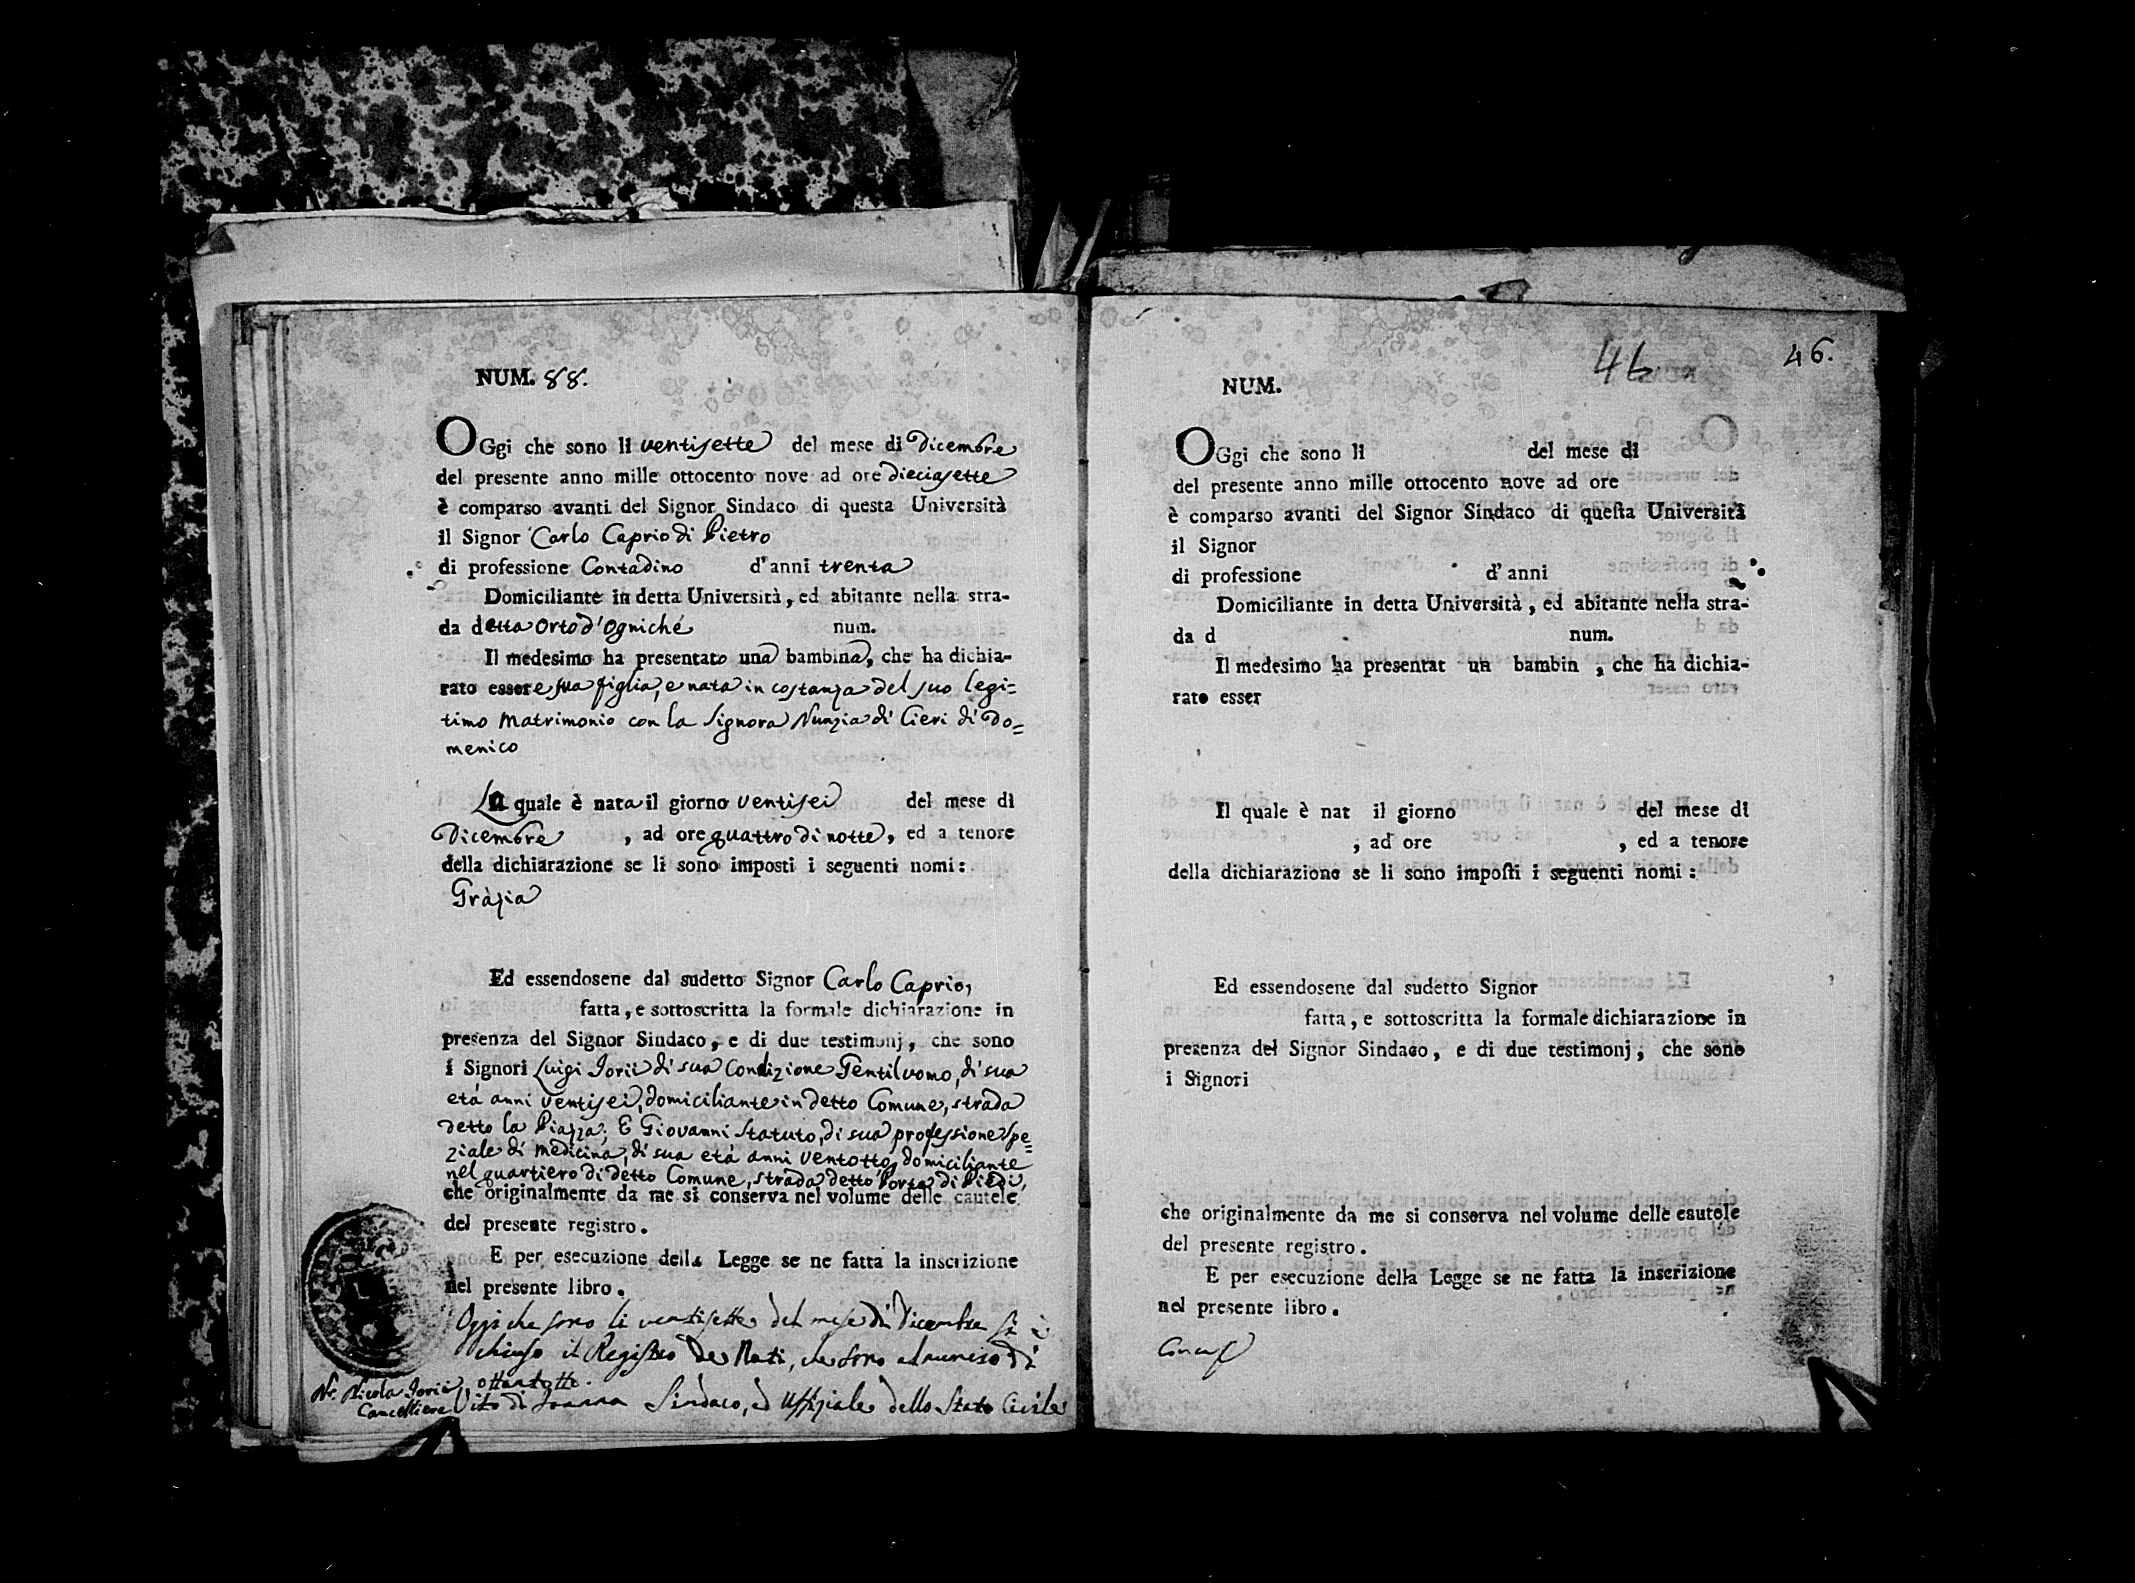 NUM. 88.
OGgi che sono li ventisette del mese di Dicembre
del presente anno mille ottocento nove ad ore dieciasette
è comparso avanti del Signor Sindaco di questa Università
il Signor Carlo Caprio di Pietro
di professione Contadino d'anni trenta
Domiciliante in detta Università, ed abitante nella stra-
da detta Orto d'Ogniché num.
Il medesimo ha presentato una bambina, che ha dichia-
rato essere sua figlia, e nata in costanza del suo legi=
timo Matrimonio con la Signora Nunzia di Cieri di Do=
menico
La quale è nata il giorno ventisei del mese di
Dicembre, ad ore quattro di notte, ed a tenore
della dichiarazione se li sono imposti i seguenti nomi:
Gràzia
Ed essendosene dal sudetto Signor Carlo Caprio,
fatta, e sottoscritta la formale dichiarazione in
presenza del Signor Sindaco, e di due testimonj, che sono
i Signori Luigi Iorii di sua Condizione Gentiluomo, di sua
età anni ventisei, domiciliante in detto Comune, strada
detto la Piazza; E Giovanni Statuto, di sua professione Spe=
ziale di medicina, di sua età anni ventotto, domiciliante
nel quartiero di detto Comune, strada detto Porta di Piedi,
che originalmente da me si conserva nel volume delle cautele
del presente registro.
E per esecuzione della Legge se ne fatta la inscrizione
nel presente libro.
Oggi che sono li ventisette del mese di Dicembre si è
chiuso il Registro de Nati, che sono al numero di
ottantotto.
Nr. Nicola Iorii
Cancelliere
Vito di Ioanna Sindaco, ed Uffiziale dello Stato Civile
46
46.
NUM.
OGgi che sono li del mese di
del presente anno mille ottocento nove ad ore
è comparso avanti del Signor Sindaco di questa Università
il Signor
di professione d'anni
Domiciliante in detta Università, ed abitante nella stra-
da d num.
Il medesimo ha presentat un bambin , che ha dichia-
rato esser
Il quale è nat il giorno del mese di
, ad ore , ed a tenore
della dichiarazione se li sono imposti i seguenti nomi:
Ed essendosene dal sudetto Signor
fatta, e sottoscritta la formale dichiarazione in
presenza del Signor Sindaco, e di due testimonj, che sono
i Signori
che originalmente da me si conserva nel volume delle cautele
del presente registro.
E per esecuzione della Legge se ne fatta la inscrizione
nel presente libro.